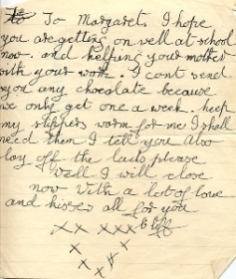 To Margaret. I hope
you are getting on well at school
now. and helping your mother
with your work. I cont send
you any chocolate because
we only get one a week. keep
my slippers warm for me I shall
need them I tell you Also
lay off the lads please
Well I will close
now With a lot of love
and kisses all for you
x x x x x
x x
x x
x